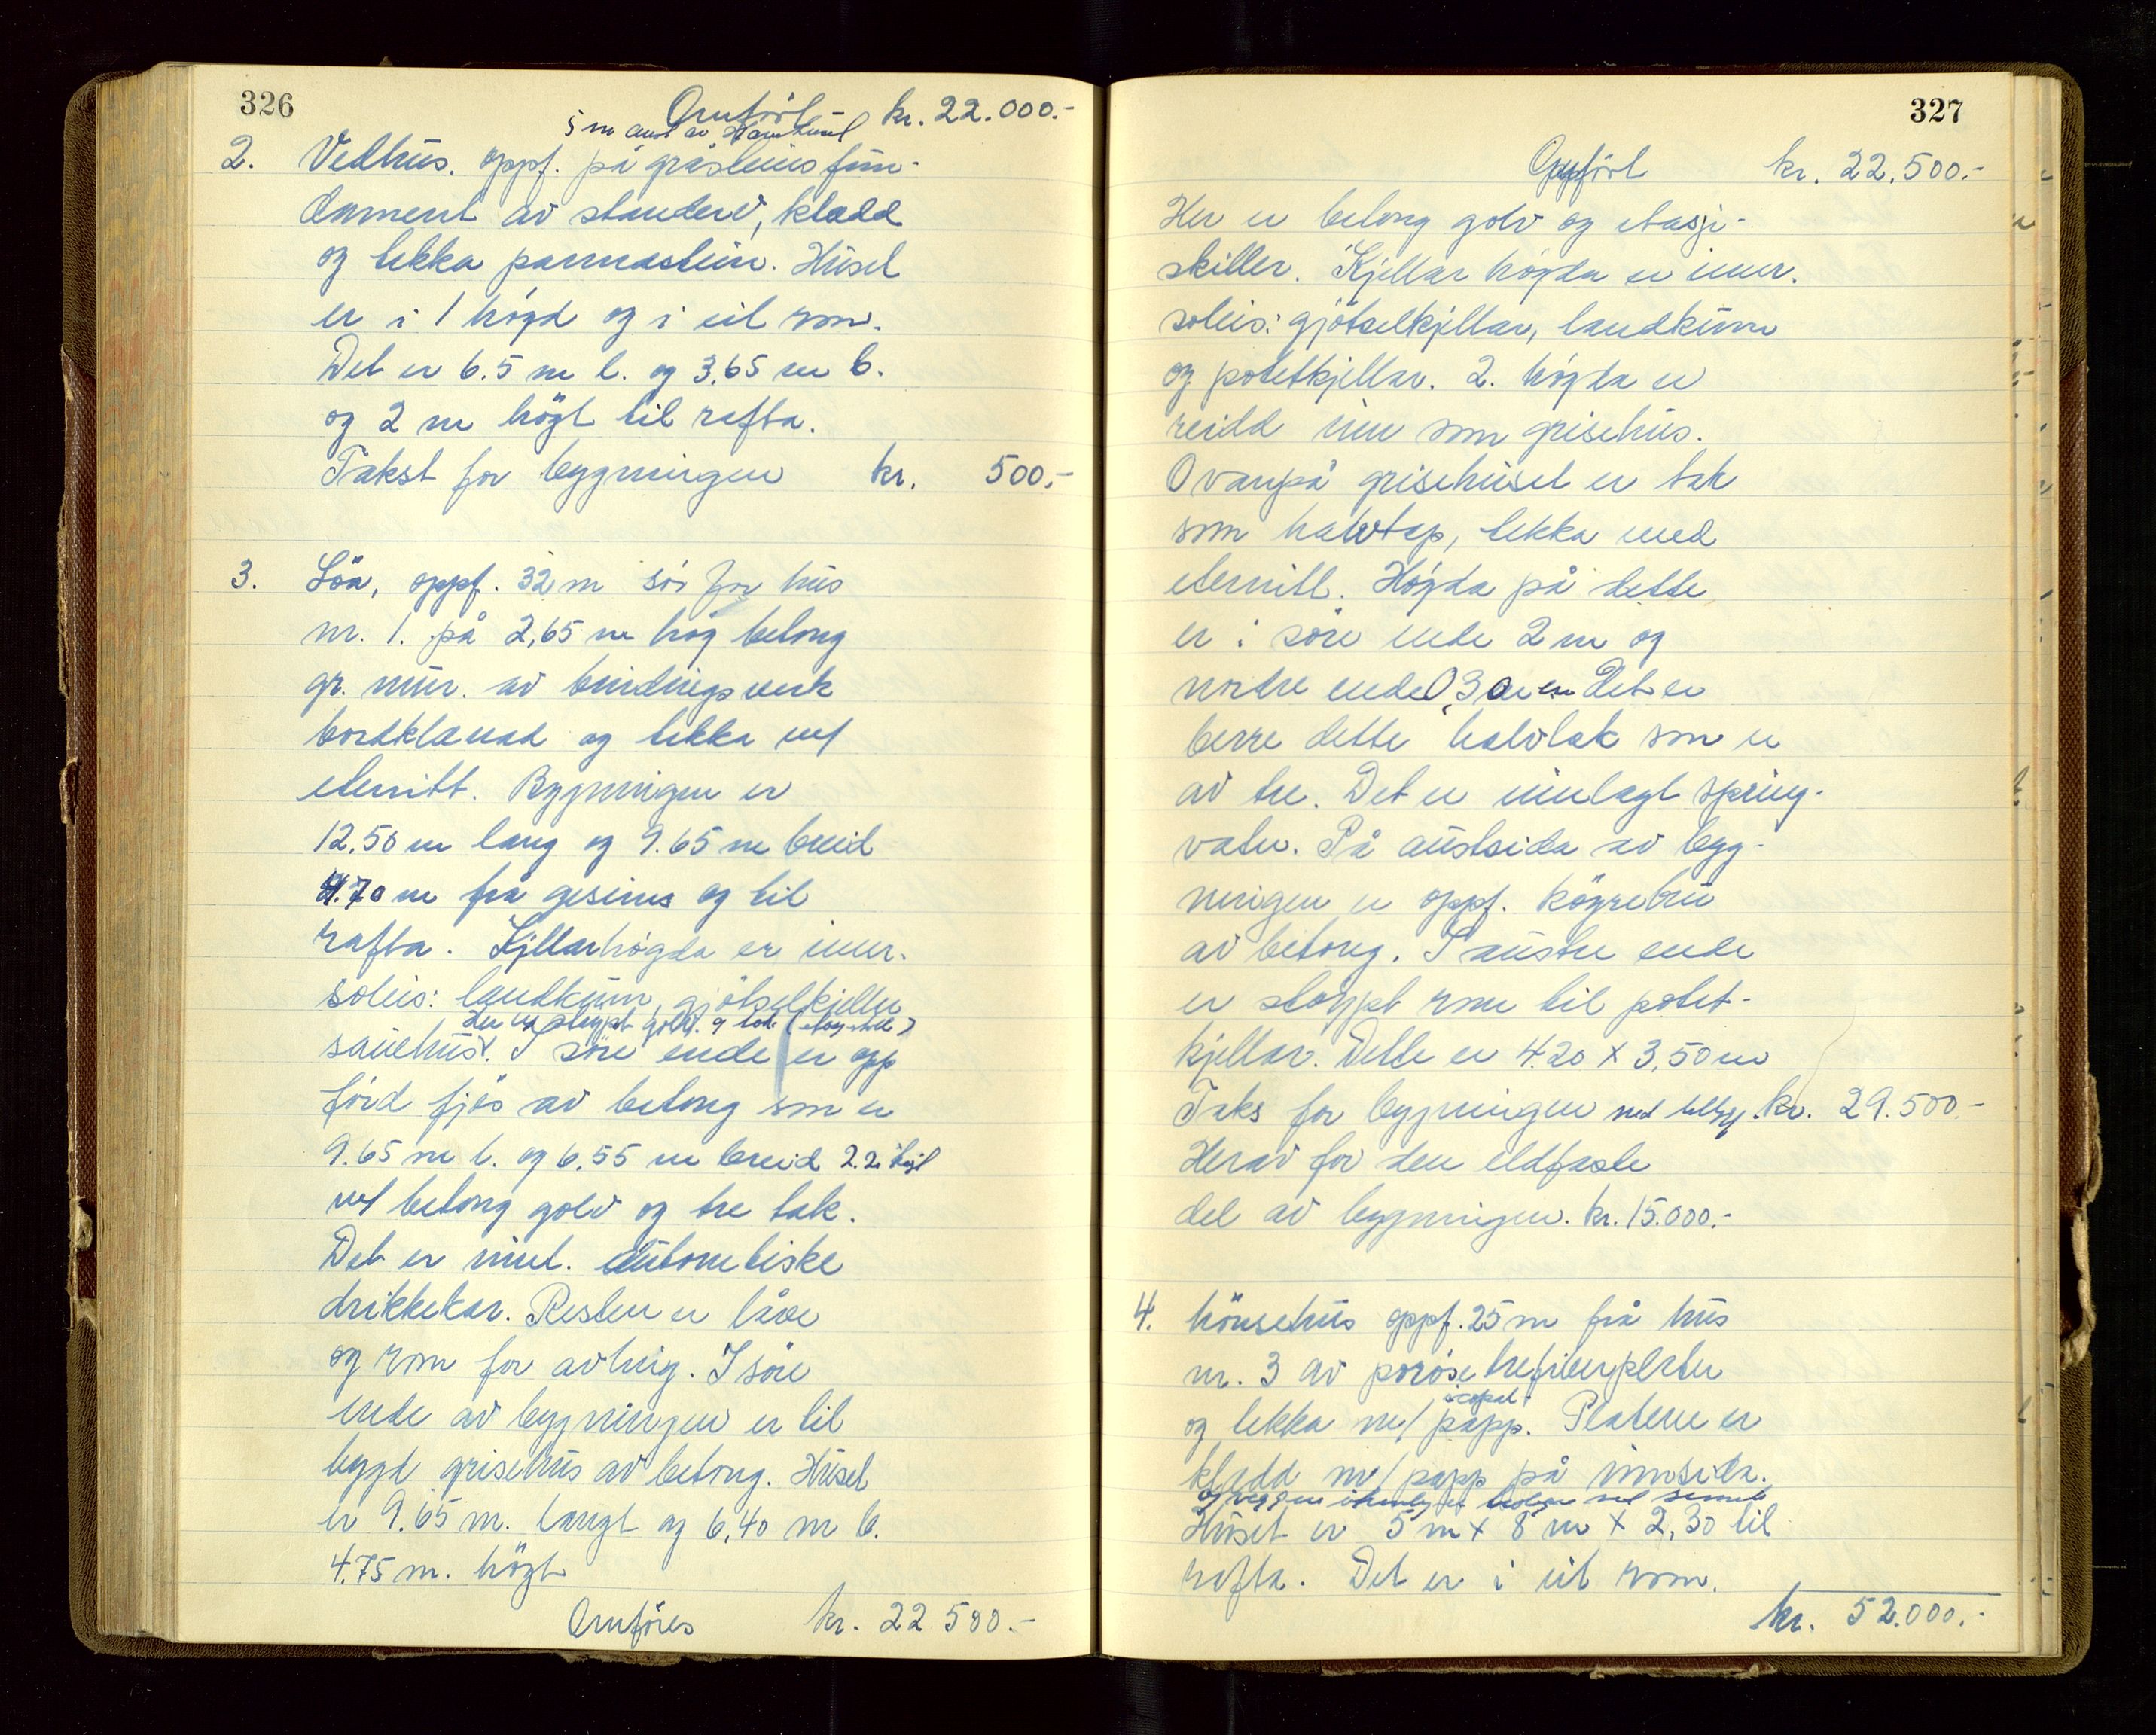 326
Omfört kr. 22.000.-
5 m aust av
2. Vedhus. oppf. på gråsteins fun-
dament av standerv, kledd
og tekka pannastein. Huset
er i 1 högd og i eit rom.
Det er 6.5 m l. og 3,65 m b.
og 2 m högt til rafta.
Takst for bygningen kr. 500,-
3. Löa, oppf. 32 m sör for hus
nr. 1. på 2,65 m hög betong
gr. mur. av bindingsverk
bordklænad og tekka m/
eternitt. Bygningen er
12,50 m lang og 9.65 m breid
4.70 m frå gesims og til
rafta. Kjellarhögda er innr.
soleis: landkum, gjötselkjellar
der er støypt golv. og tak
sauehus. I söre ende er opp
förd fjös av betong som er
9.65 m l. og 6,55 m breid 2.2 högt
m/ betong golv og tre tak.
Det er innl. automatiske
drikkekar. Resten er låve
og rom for avling. I söre
ende av bygningen er til
bygt grisehus av betong. Huset
er 9.65 m. langt og 6,40 m b.
4.75 m. högt
Omföres kr. 22 500.-
327
Oppfört kr. 22.500.-
Her er betong golv og etasje-
skiller. Kjellar högda er innr.
soleis: gjötselkjellar, landkum
og potetkjellar. 2. högda er
reidd inn som grisehus.
Ovanpå grisehuset er tak
som halvtap, tekka med
eternitt. Högda på dette
er i söre ende 2 m og
nordre ende 0,30 m Det er
berre dette halvtak som er
av tre. Det er innlagt spring-
vatn. På austsida av byg-
ningen er oppf. köyrebru
av betong. I austre ende
er støypt rom til potet-
kjellar. Dette er 4.20 x 3,50 m
Taks for bygningen med tilbygg. kr. 29.500.-
Herav for den eldfaste
del av bygningen. kr. 15.000.-
4. hönsehus oppf. 25 m frå hus
nr. 3 av poröse trefiberplater
og tekka m/ papp. Platene er
kledd m/ papp på innsida.
Huset er 5 m x 8 m x 2,30 til
rafta. Det er i eit rom.
kr. 52.000.-